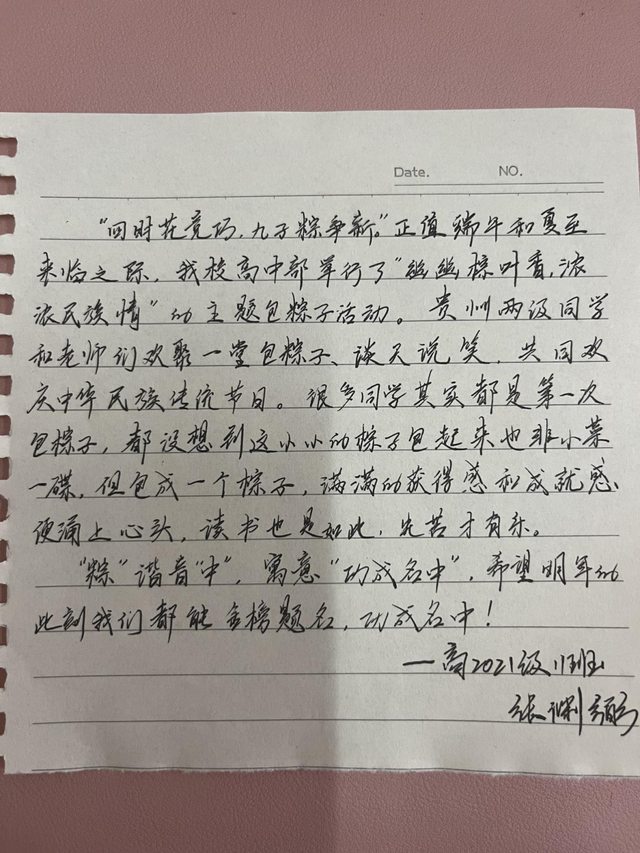 Date. NO.
“四时花竞巧，九子粽争新。”正值端午和夏至
来临之际，我校高中部举行了“幽幽棕叶香，浓
浓民族情”的主题包粽子活动。贵州两级同学
和老师们欢聚一堂包粽子、谈天说笑，共同欢
庆中华民族传统节日。很多同学其实都是第一次
包粽子，都没想到这小小的棕子包起来也非小菜
一碟，但包成一个棕子，满满的获得感和成就感
便涌上心头，读书也是如此，先苦才有乐。
“粽”谐音“中”，寓意“功成名中”，希望明年的
此刻我们都能金榜题名，功成名中！
—高2021级 班
张